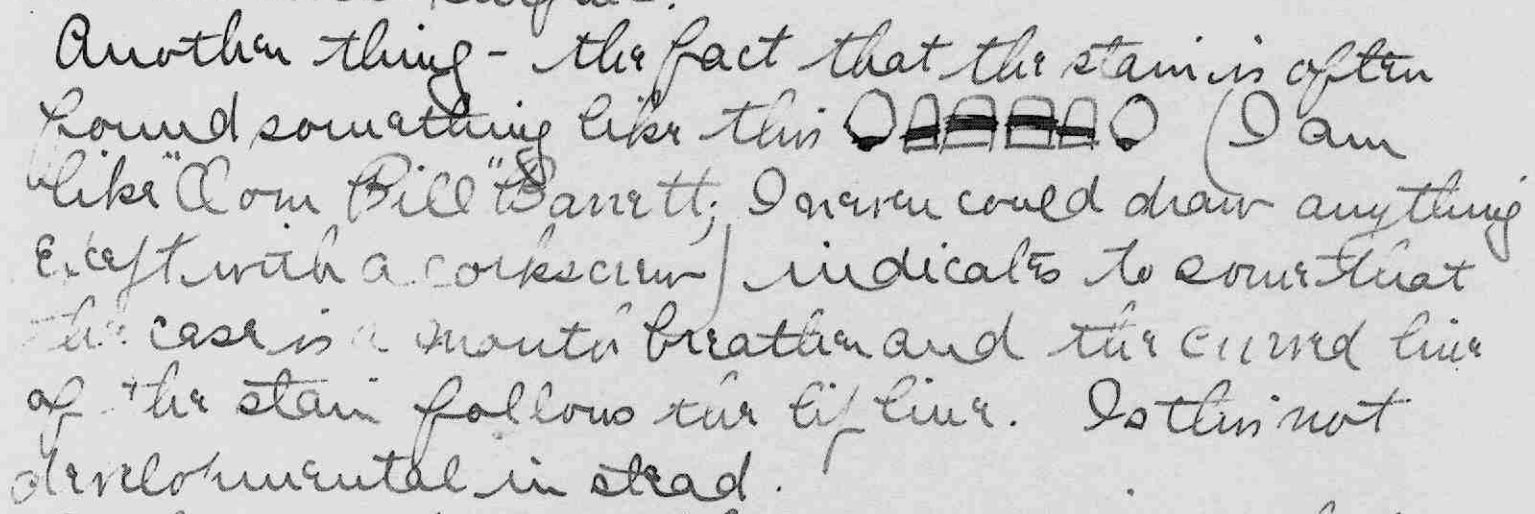 Another thing - the fact that the stain is often
found something like this (I am
like "Bill" Barrett; I never could draw anything
except with a corkscrew) indicates to some that
the case is a mouth breather and the curved line
of the stain follows the lip line. Is this not
developmental in stead.